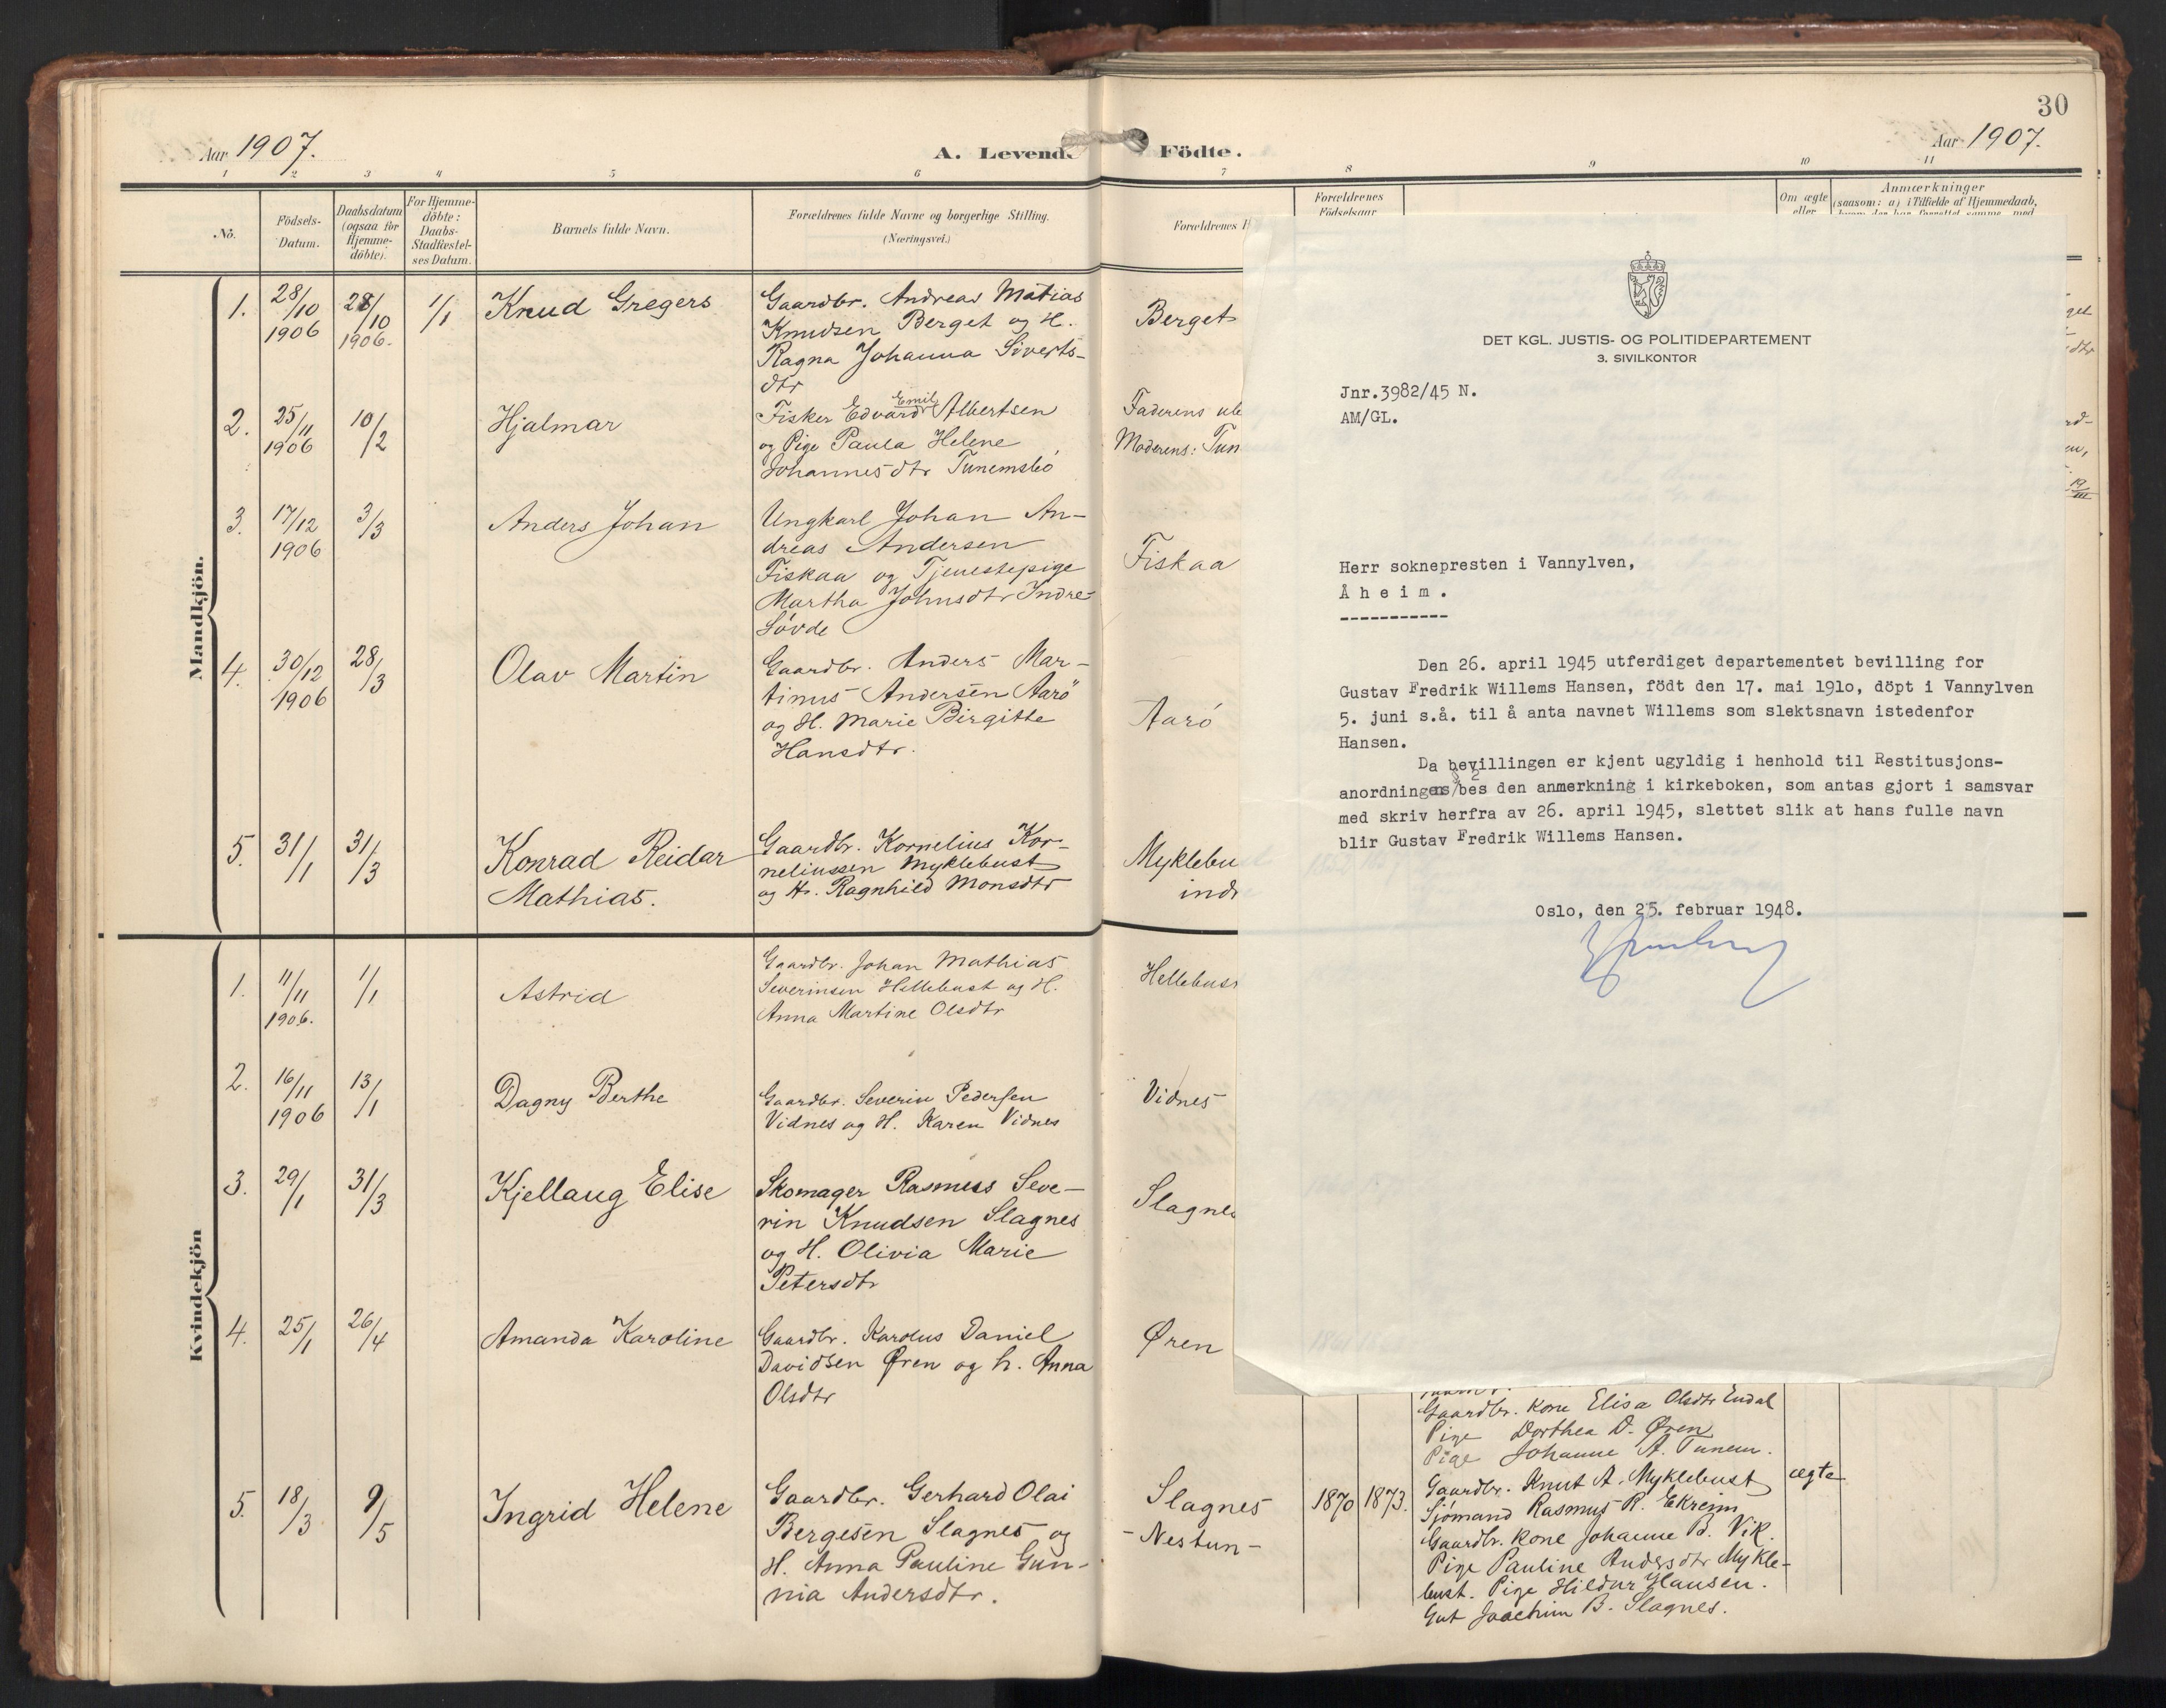 Aar 1907.
A. Levende
1 2 3 4 5 6
No.
Födsels-
Datum.
Daabsdatum
(ogsaa for
Hjemme-
döbte).
For Hjemme-
döbte:
Daabs-
Stadfæstel-
ses Datum.
Barnets fulde Navn.
Forældrenes fulde Navne og borgerlige Stilling.
(Næringsvei.)
Mandkjön.
1. 28/10 1906 28/10 1906. 1/1 Knud Gregers
Gaardbr. Andreas Matias
Knudsen Berget og H.
Ragna Johanna Siverts-
dtr
2. 25/11 1906 10/2 Hjalmar
Fisker Edvard Emil Albertsen
og Pige Paula Helene
Johannesdtr Tunemsbö
3. 17/12 1906 3/3 Anders Johan
Ungkarl Johan An-
dreas Andersen
Fiskaa og Tjenestepige
Martha Johnsdtr Indre-
Sövde
4. 30/12 1906 28/3 Olav Martin
Gaardbr. Anders Mar-
tinus Andersen Aarö
og H. Marie Birgitte
Hansdtr.
5. 31/1 31/3 Konrad Reidar
Mathias.
Gaardbr. Kornelius Kor-
neliussen Myklebust
og H. Ragnhild Monsdtr
Kvindekjön
1. 11/11 1906. 1/1 Astrid
Gaardbr. Johan Mathias
Severinsen Hellebust og H.
Anna Martine Olsdtr
2. 16/11 1906 13/1 Dagny Berthe
Gaardbr. Severin Pedersen
Vidnes og H. Karen Vidnes
3. 29/1 31/3 Kjellaug Elise
Skomager Rasmus Seve-
rin Knudsen Slagnes
og H. Olivia Marie
Petersdtr
4. 25/1 26/4 Amanda Karoline
Gaardbr. Karolus Daniel
Davidsen Øren og h. Anna
Olsdtr
5. 18/3 9/5 Ingrid Helene
Gaardbr. Gerhard Olai
Bergesen Slagnes og
H. Anna Pauline Gun-
nia Andersdtr.
30
Födte.
Aar 1907.
7 8 9 10 11
Forældrenes
Forældrenes
Födselsaar
Om ægte
eller
Anmærkninger
(saasom: a) i Tilfælde af Hjemmedaab,
Berget
Faderens
Moderens: Tun
Fiskaa
Aarö
Myklebu
indr
Hellebus
Vidnes
Slagnes
Øren
Slagnes
- Nestun -
1870 1873.
Gaardbr. kone Elisa Olsdtr Endal
Pige Dorthea D. Øren
Pige Johanne A. Tunem.
Gaardbr. Knut A. Myklebust
Sjömand Rasmus R. Ekreim
Gaardbr. kone Johanne B. Vik.
Pige Pauline Andersdtr Mykle-
bust. Pige Hildur Hansen.
Gut Joachim B. Slagnes.
ægte
DET KGL. JUSTIS- OG POLITIDEPARTEMENT
3. SIVILKONTOR
Jnr.3982/45 N.
AM/GL.
Herr soknepresten i Vannylven,
Å h e i m .
-----------
Den 26. april 1945 utferdiget departementet bevilling for
Gustav Fredrik Willems Hansen, födt den 17. mai 1910, döpt i Vannylven
5. juni s.å. til å anta navnet Willems som slektsnavn istedenfor
Hansen.
Da bevillingen er kjent ugyldig i henhold til Restitusjons-
anordningens § 2 bes den anmerkning i kirkeboken, som antas gjort i samsvar
med skriv herfra av 26. april 1945, slettet slik at hans fulle navn
blir Gustav Fredrik Willems Hansen.
Oslo, den 25. februar 1948.